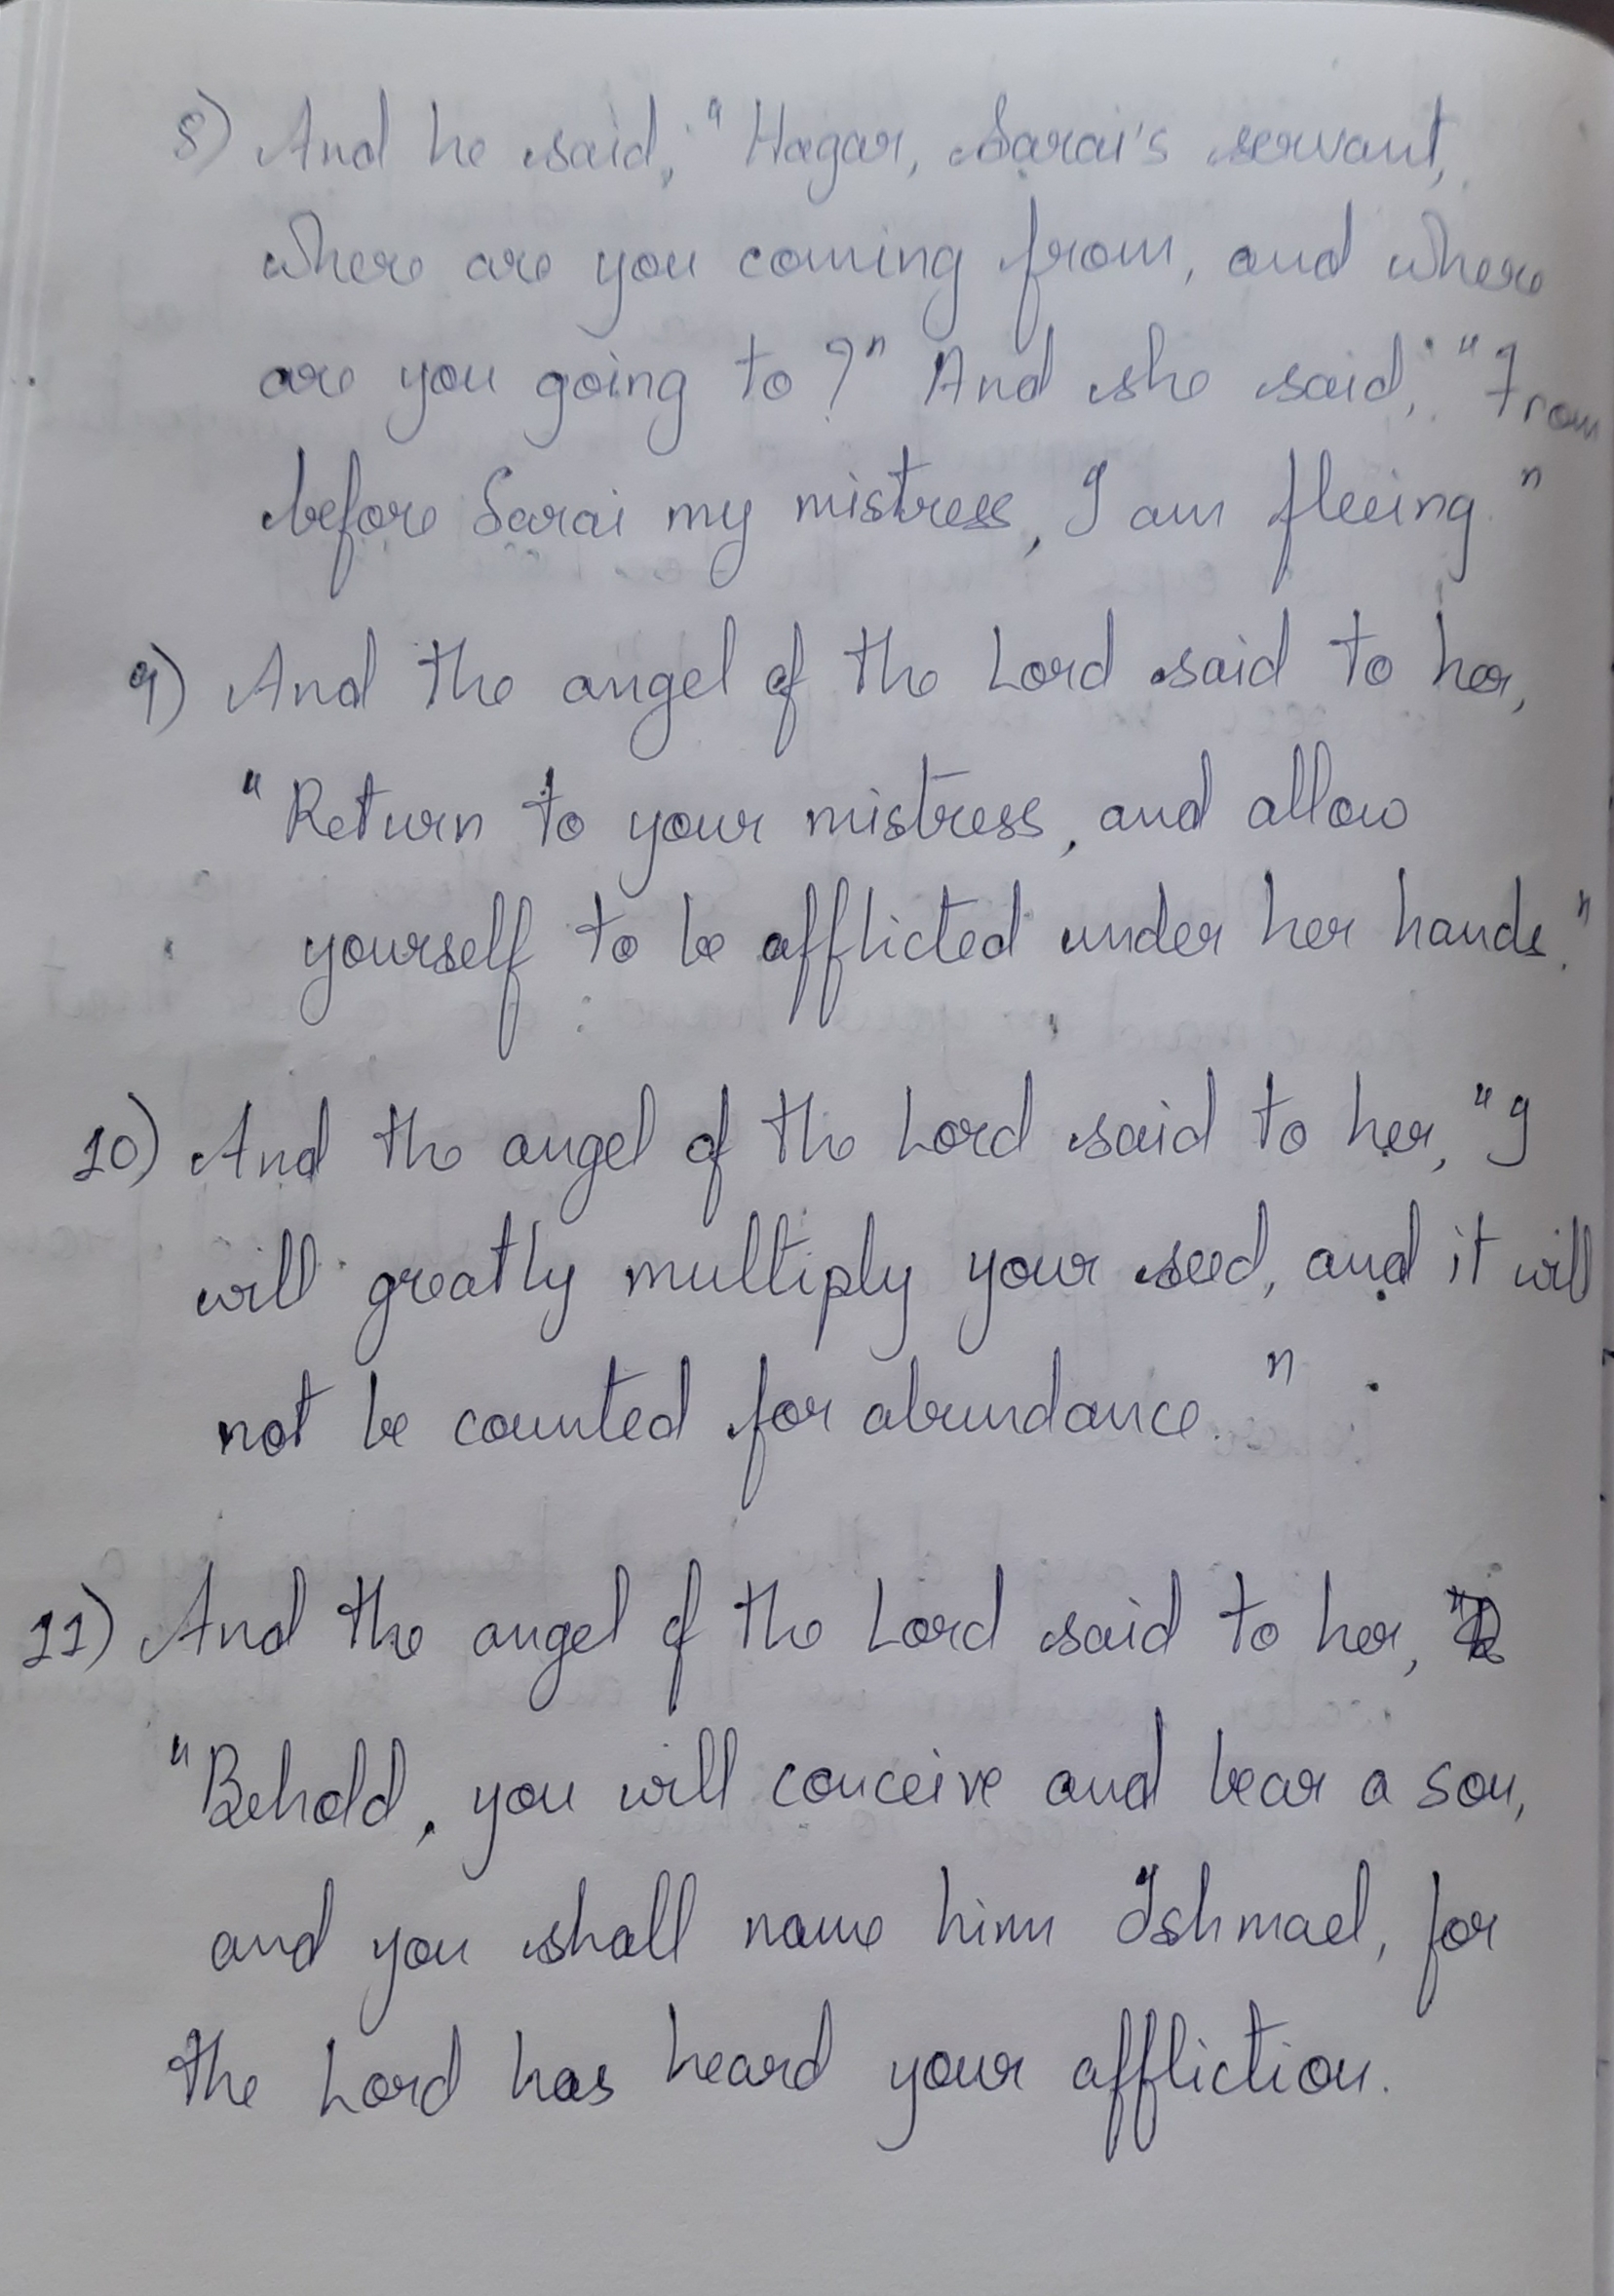 8) And he said, "Hagar, Sarai's servant,
where are you coming from, and where
are you going to?" And she said, "From
before Sarai my mistress, I am fleeing."
9) And the angel of the Lord said to her,
"Return to your mistress, and allow
yourself to be afflicted under her hands."
10) And the angel of the Lord said to her, "I
will greatly multiply your seed, and it will
not be counted for abundance."
11) And the angel of the Lord said to her,
"Behold, you will conceive and bear a son,
and you shall name him Ishmael, for
the Lord has heard your affliction.